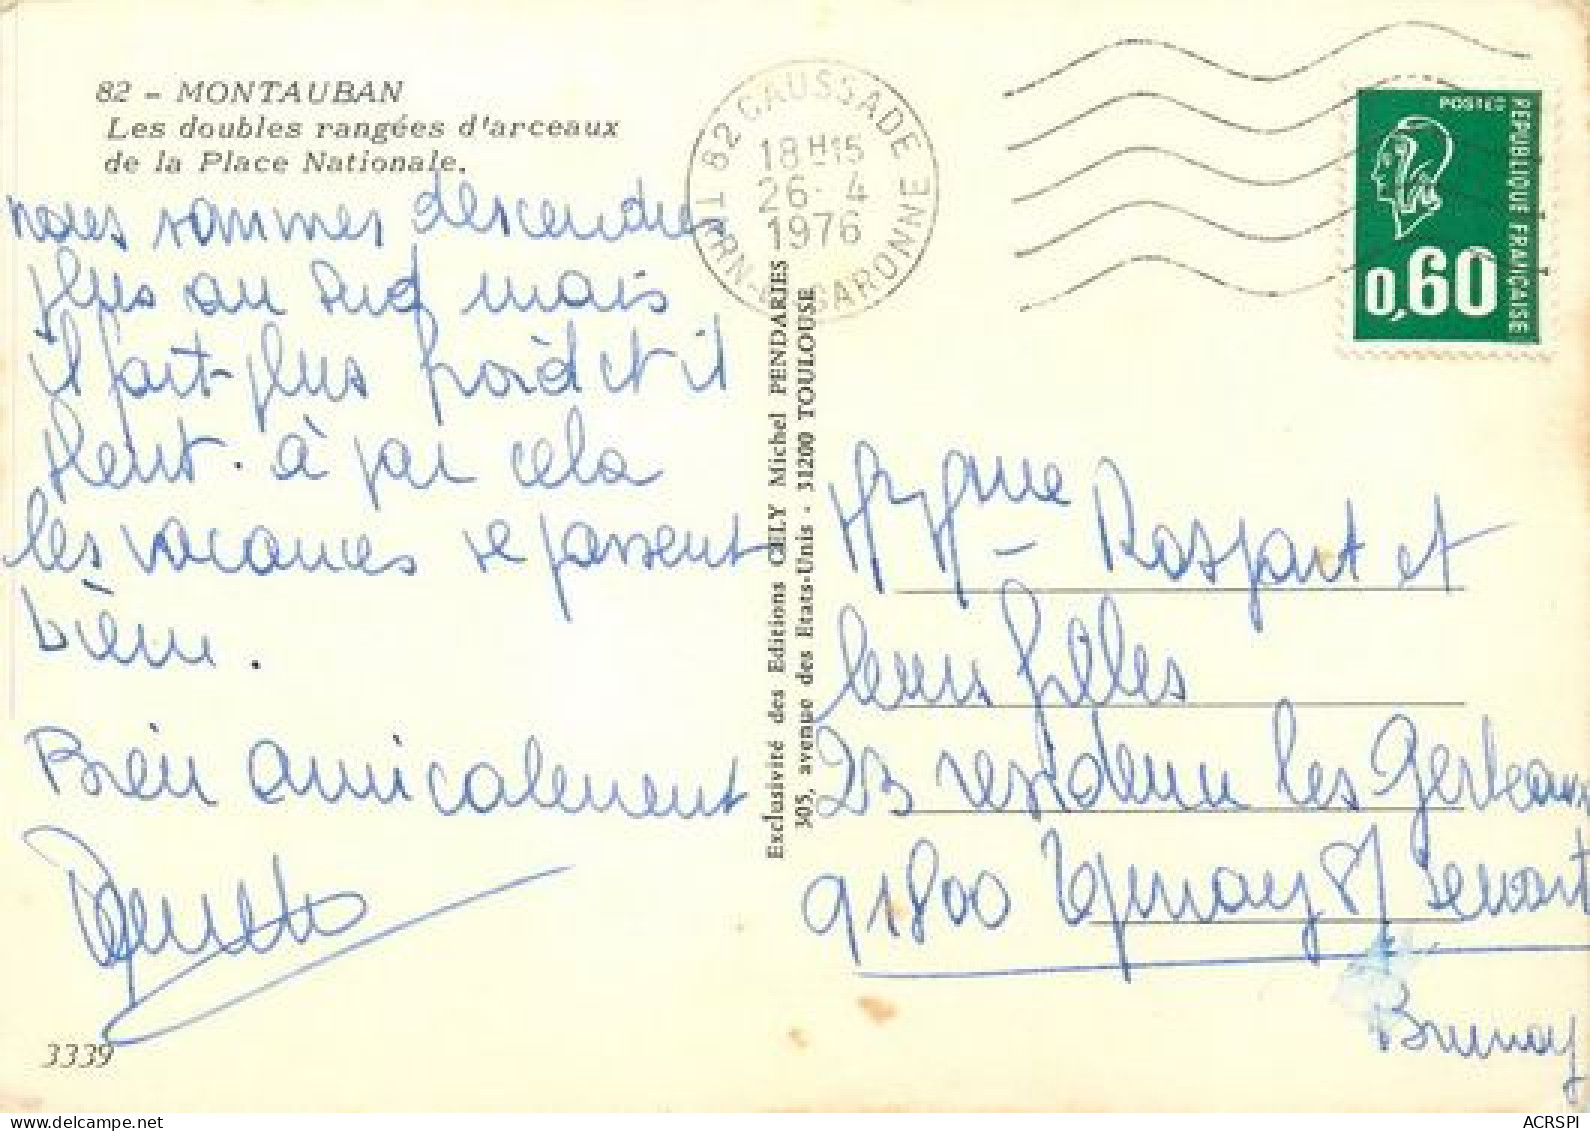 82 - MONTAUBAN
Les doubles rangées d'arceaux
de la Place Nationale.
nous sommes descendu
plus au sud mais
il fait plus froid et il
pleut. à par cela
les vacances se passent
bien.
Bien amicalement
3339
Exclusivité des Editions CELY Michel PENDARIES
305, avenue des Etats-Unis - 31200 TOULOUSE
82 CAUSSADE
18H15
26-4
1976
TARN-ET-GARONNE
POSTES
REPUBLIQUE FRANÇAISE
0,60
Rospart et
leurs filles
23 les Gerbeaux
91800 Epinay s/ Senart
Brunoy
ACRSPI